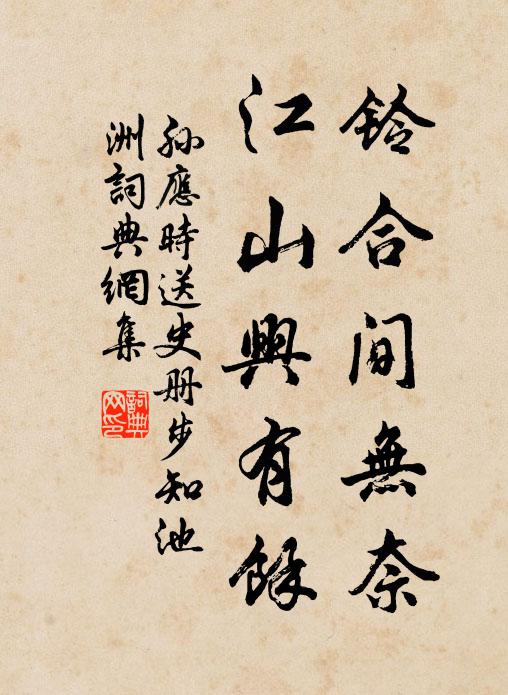 鈴合閒無奈
江山興有餘
孙應時送史册步知池
洲詞典網集
詞典网印